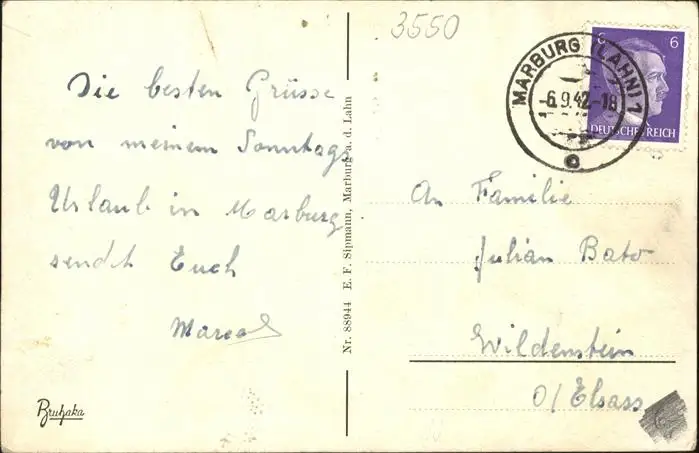 3550
6 6
DEUTSCHES REICH
MARBURG (LAHN) 1
-6.9.42.-18
Die besten Grüsse
von meinem Sonntags
Urlaub in Marburg
sendet Euch
Marcel
An Familie
Julian Bato
Wildenstein
O/Elsass
Nr. 88944 E. F. Sipmann, Marburg a. d. Lahn
Bruhaka